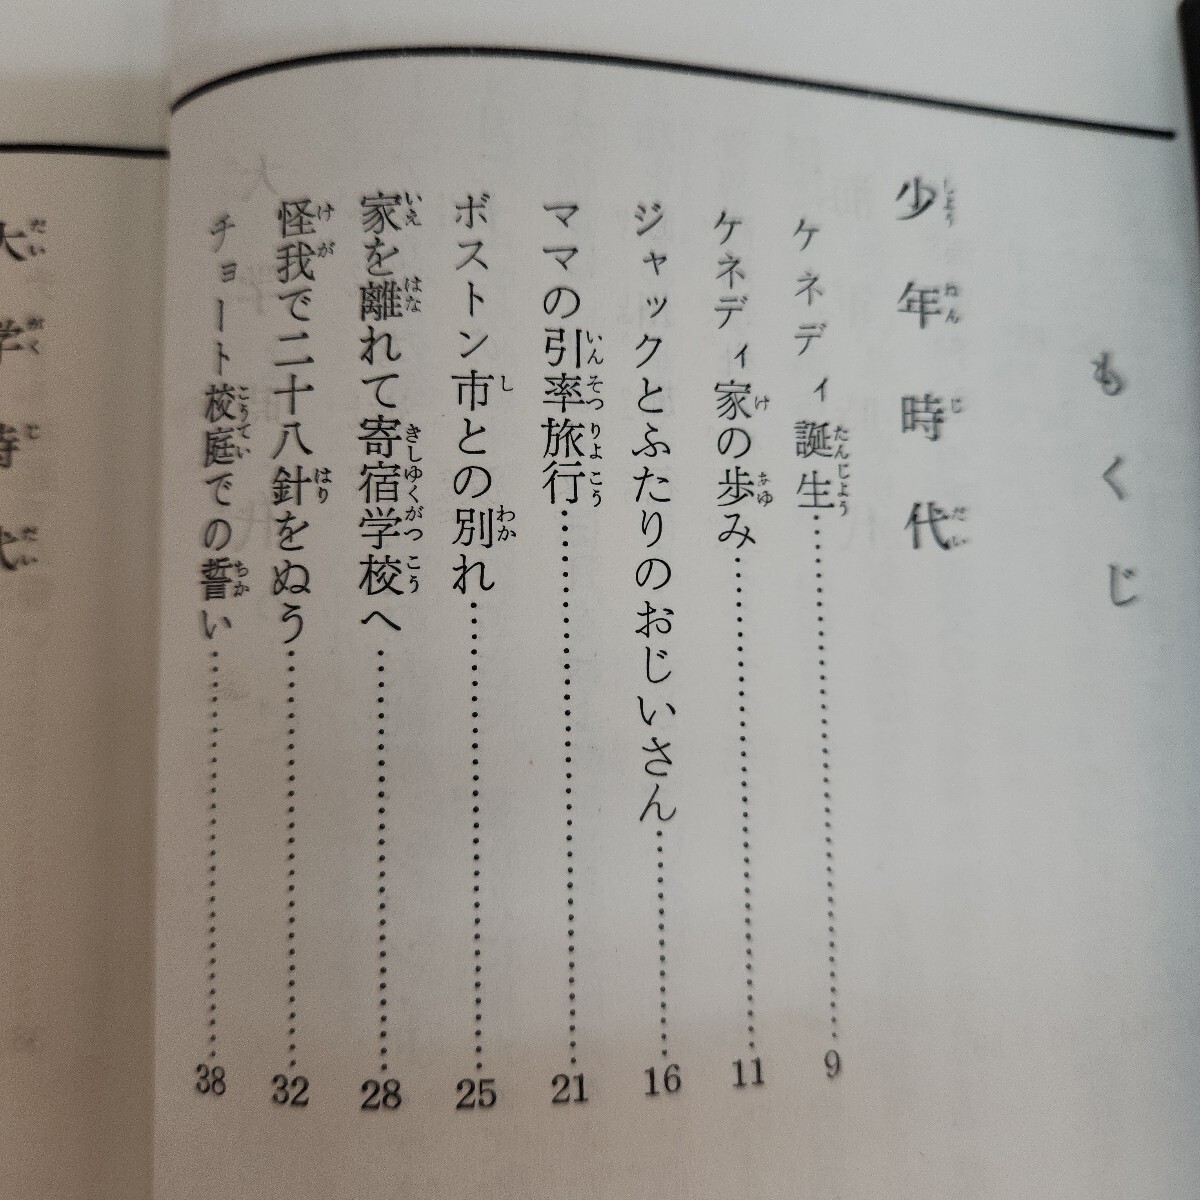 もくじ
少年時代
ケネディ誕生……9
ケネディ家の歩み……11
ジャックとふたりのおじいさん……16
ママの引率旅行……21
ボストン市との別れ……25
家を離れて寄宿学校へ……28
怪我で二十八針をぬう……32
チョート校庭での誓い……38
大学時代